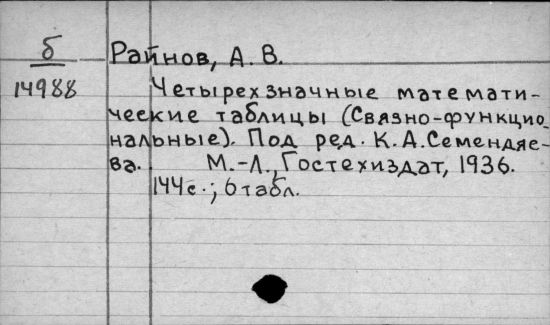 б
14988
Райнов, А. В.
Четырехзначные математи-
ческие таблицы (Связно-функцио-
нальные). Под ред. К. А. Семендяе-
ва. М.-Л., Гостехиздат, 1936.
144с.; 6 табл.